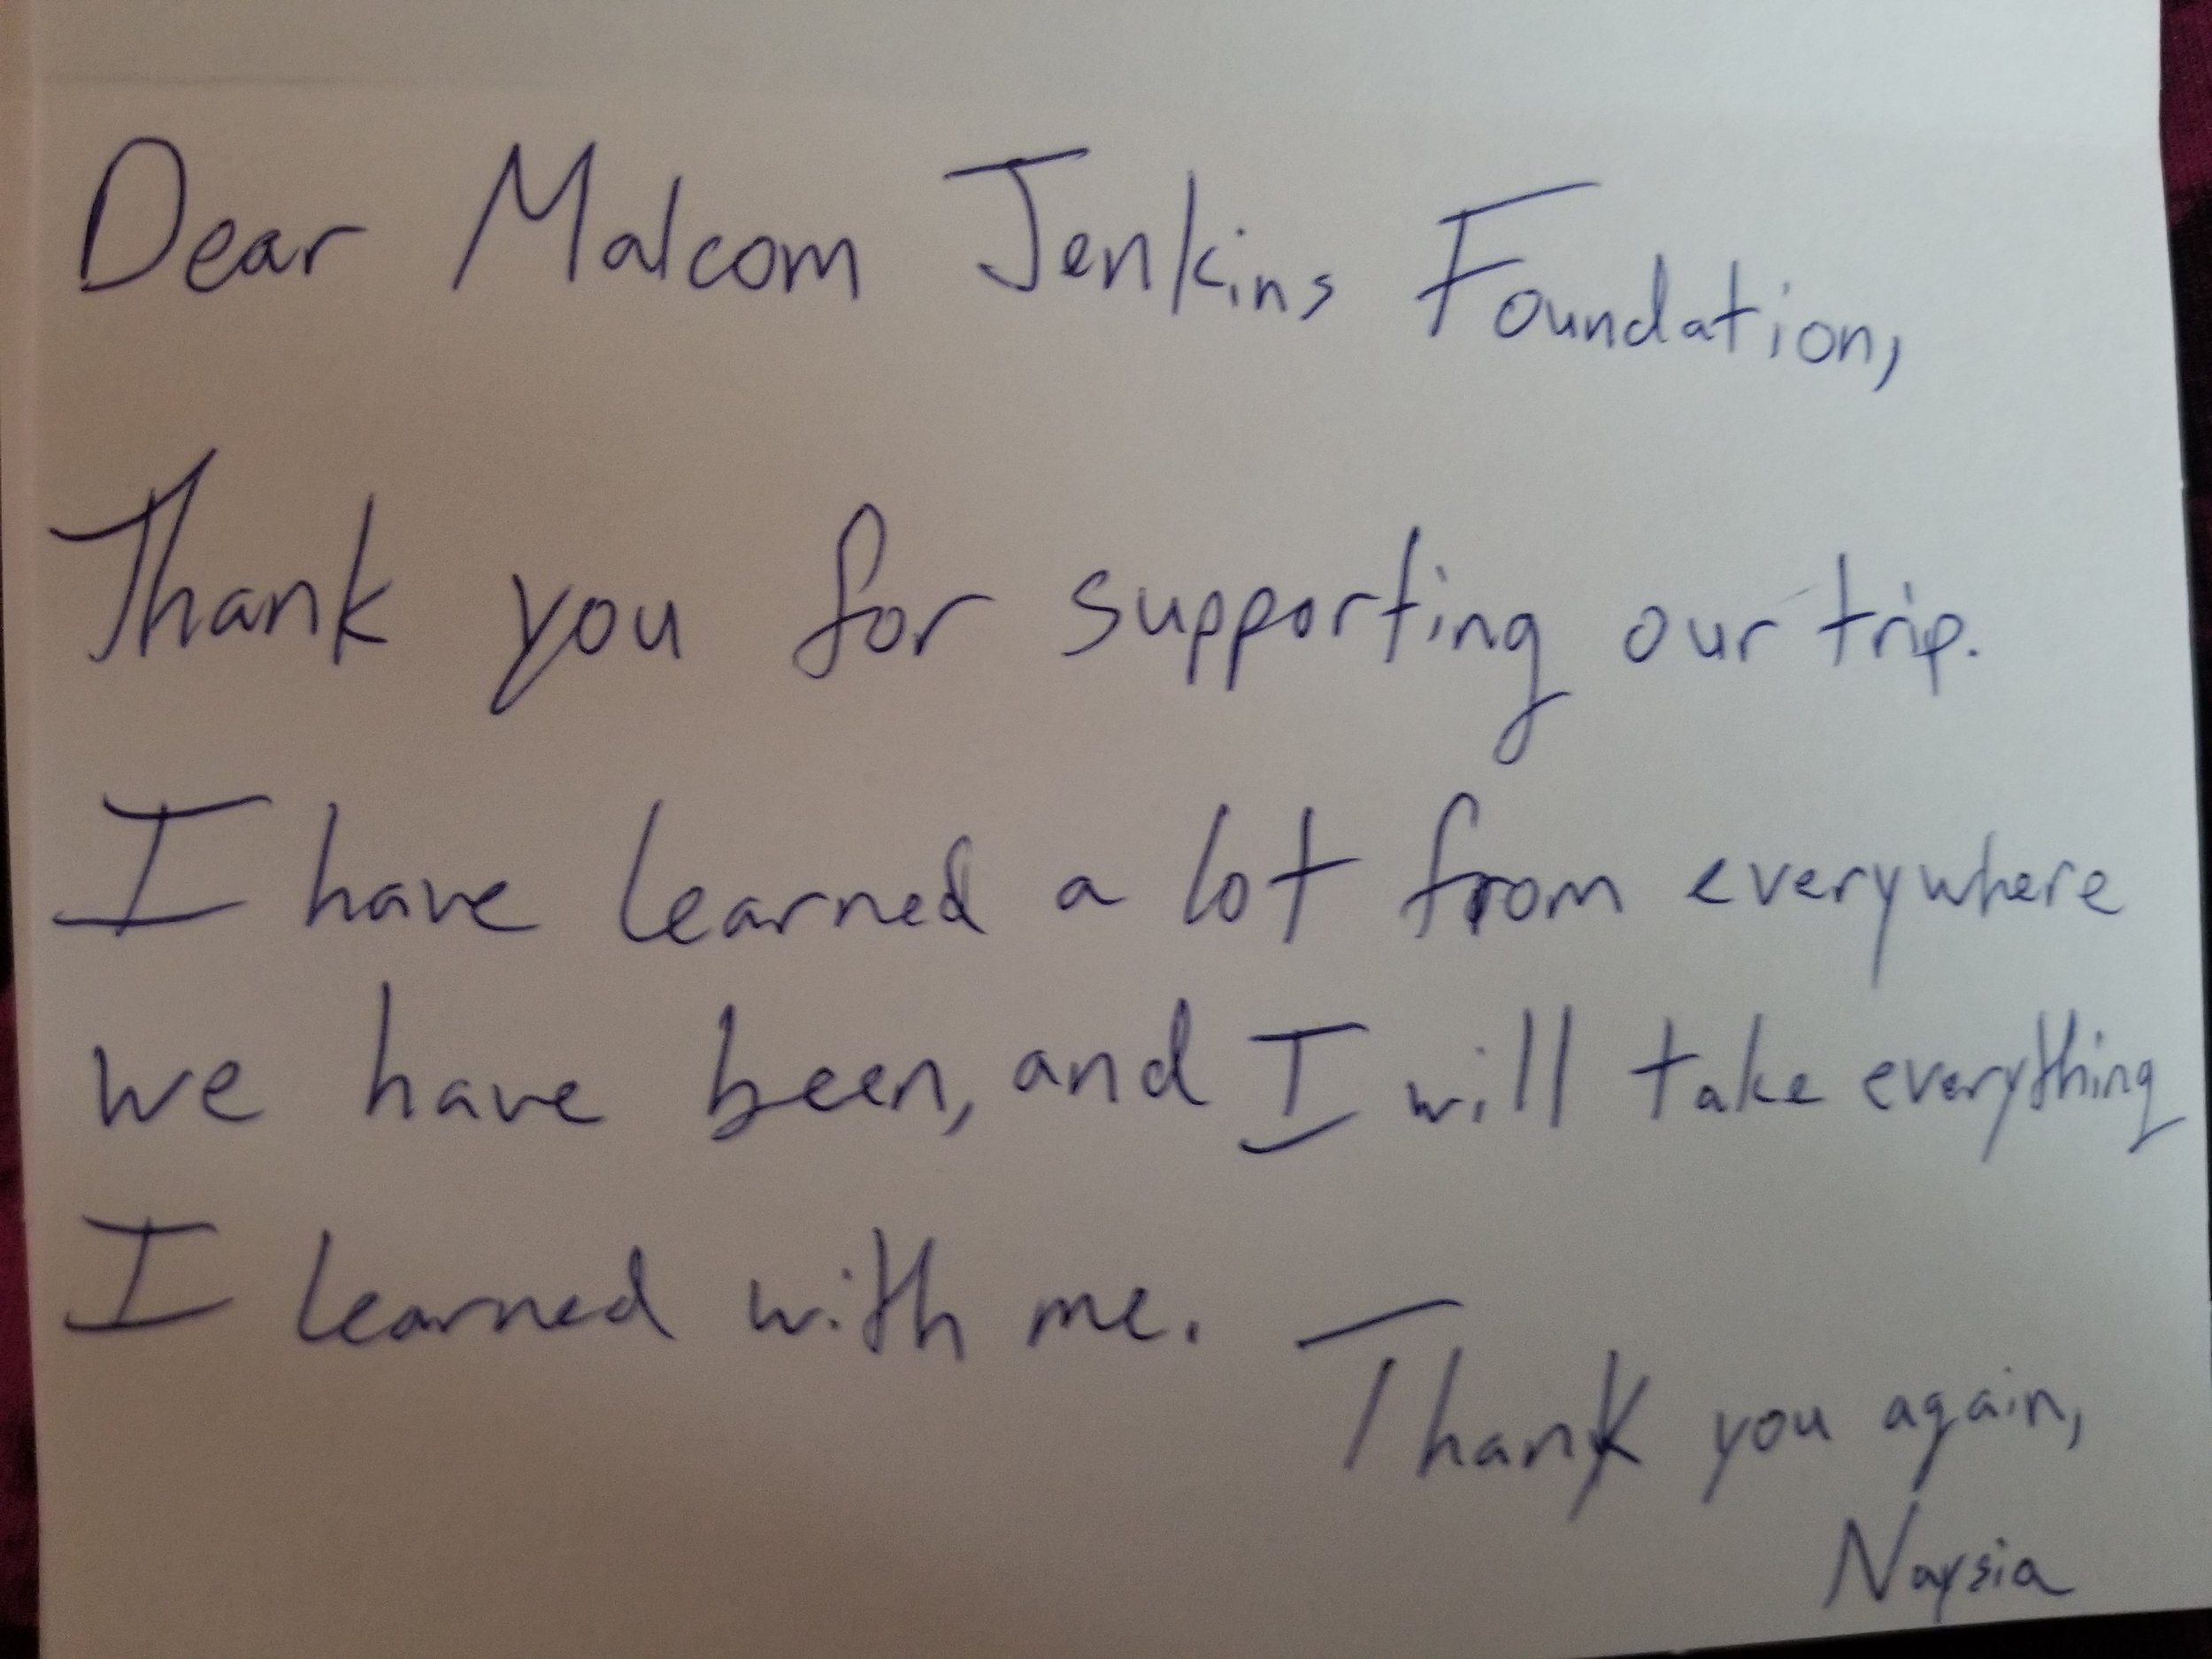 Dear Malcom Jenkins Foundation,
Thank you for supporting our trip.
I have learned a lot from everywhere
we have been, and I will take everything
I learned with me.
Thank you again,
Naysia